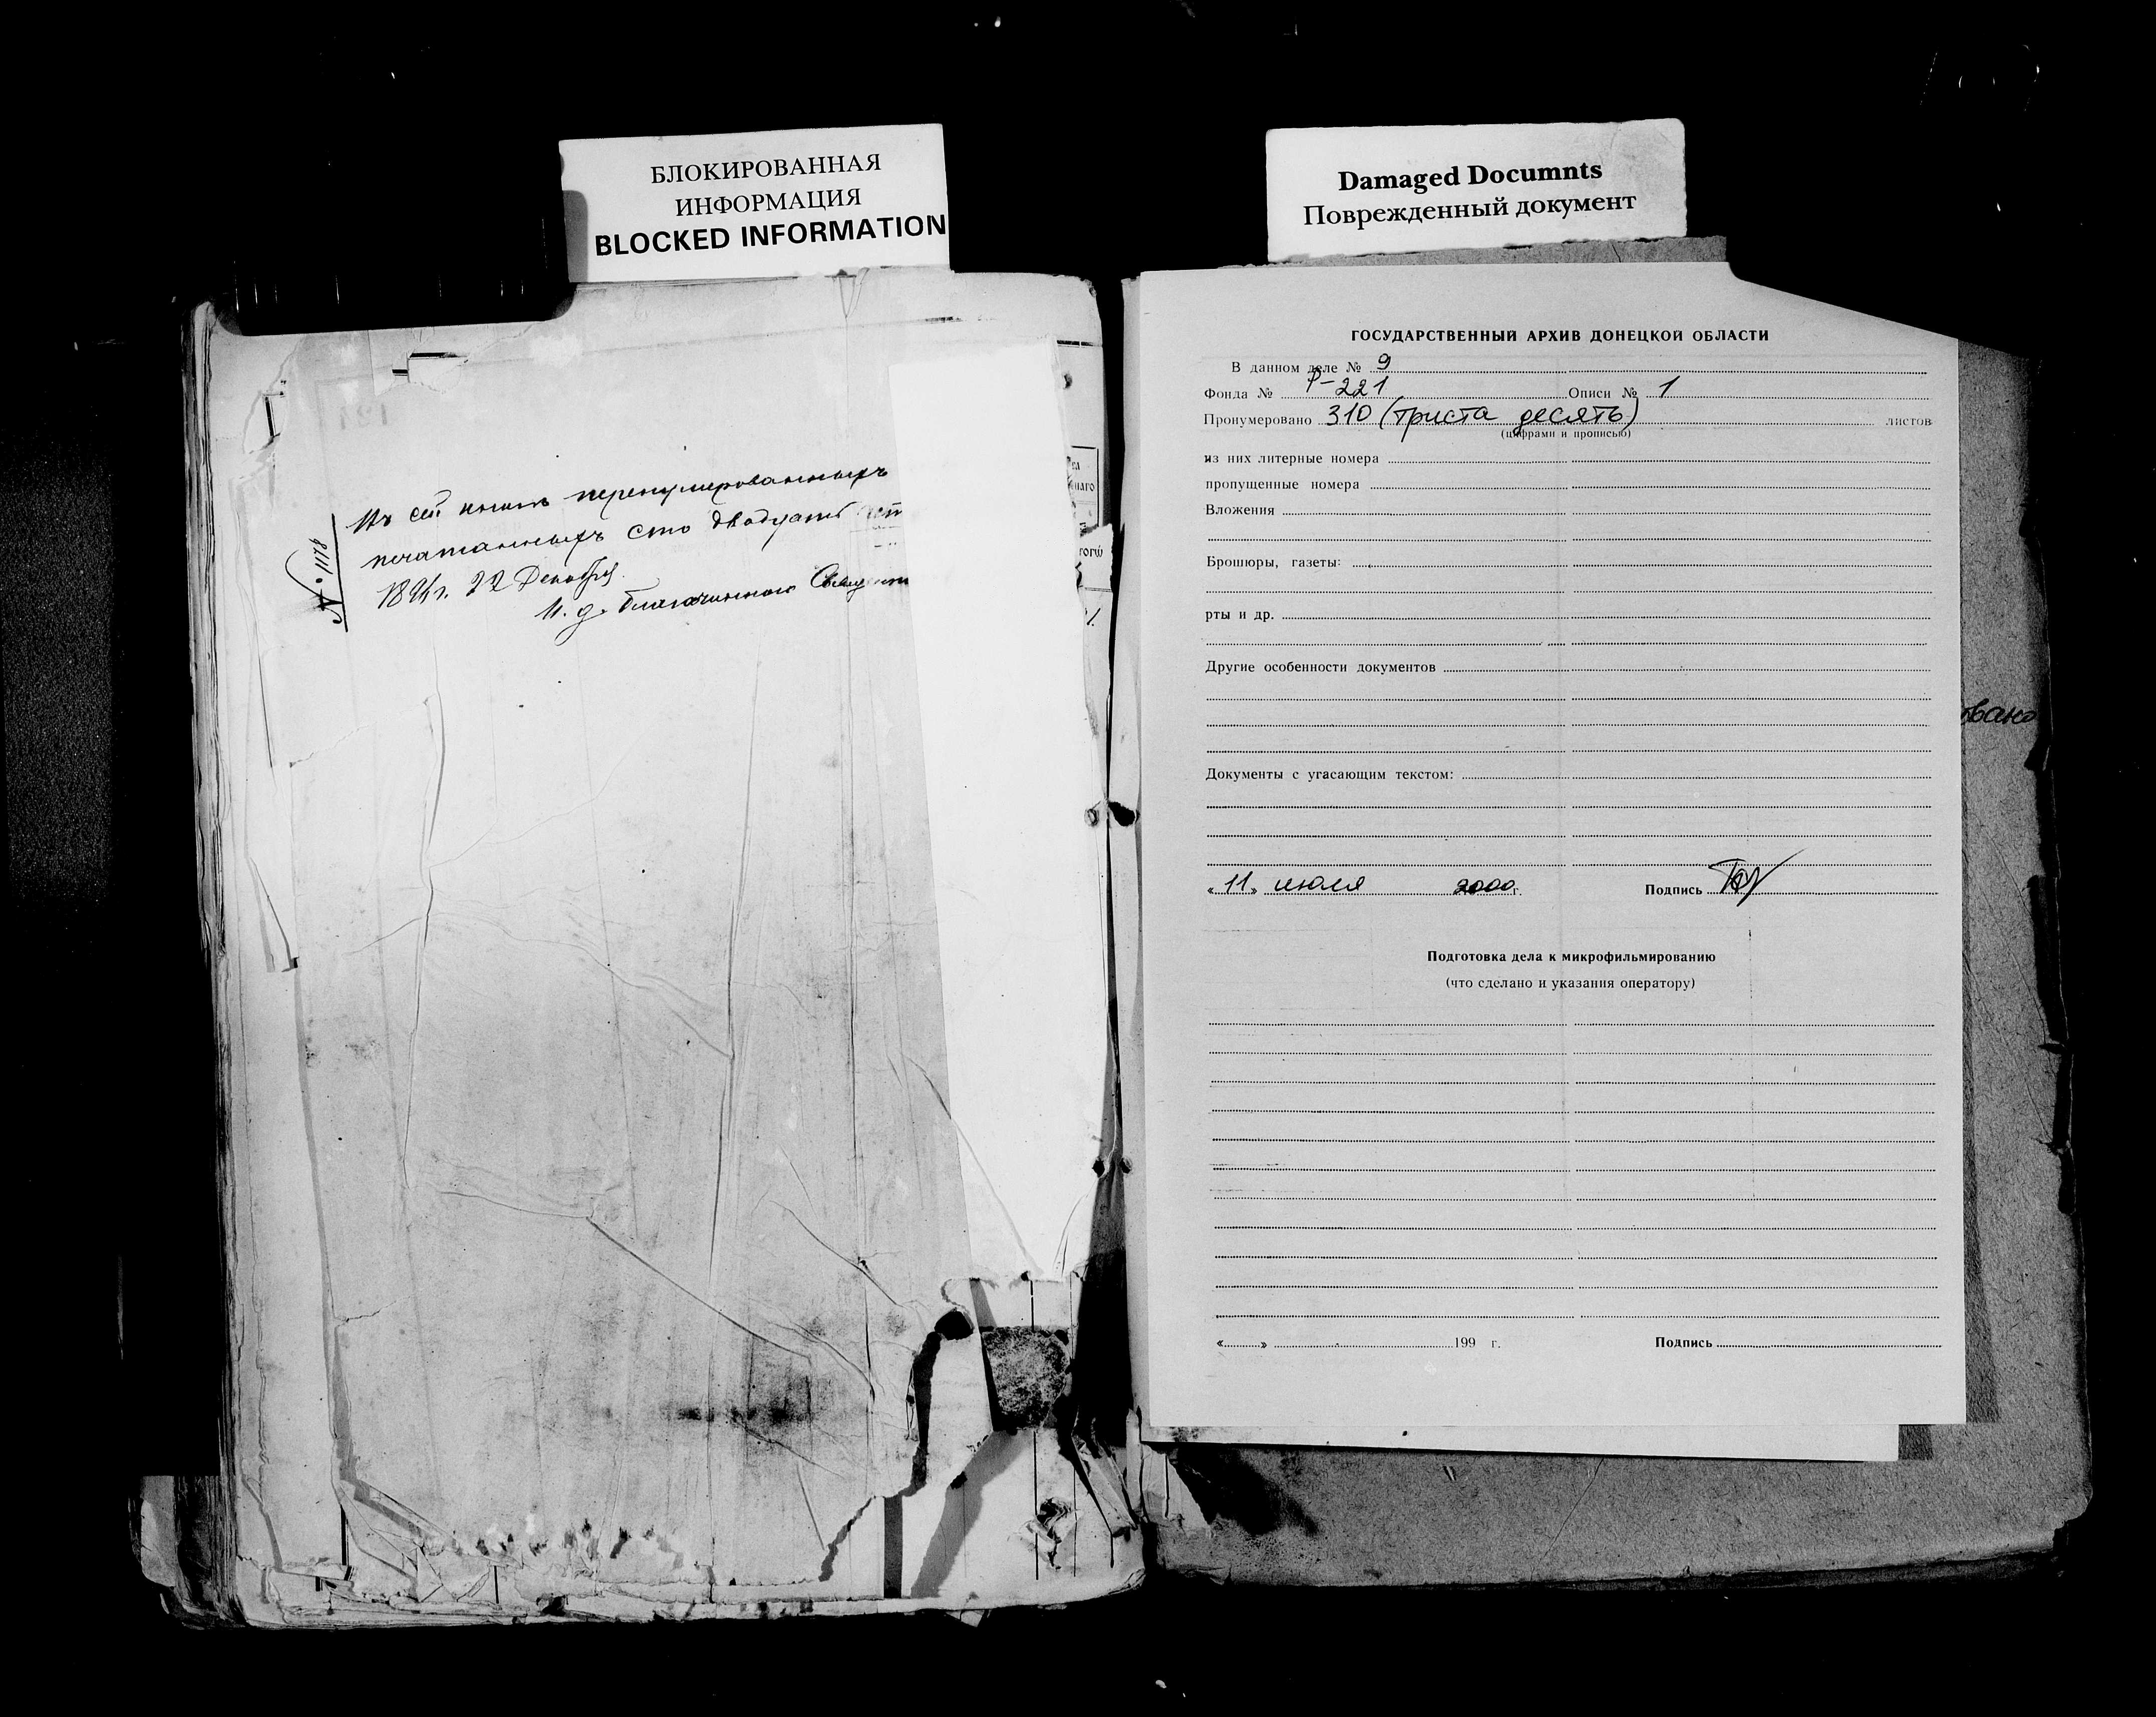 БЛОКИРОВАННАЯ
ИНФОРМАЦИЯ
BLOCKED INFORMATION
Damaged Documnts
Поврежденный документ
№ 1178
Въ сей книгѣ перенумерованныхъ
печатанныхъ сто двадцать
22 Декабря
И. д. благочиннаго Священ
ГОСУДАРСТВЕННЫЙ АРХИВ ДОНЕЦКОЙ ОБЛАСТИ
В данном деле № 9
Фонда № Р-221 Описи № 1
Пронумеровано 310 (триста десять) листов
(цифрами и прописью)
из них литерные номера
пропущенные номера
Вложения
Брошюры, газеты:
рты и др.
Другие особенности документов
Документы с угасающим текстом:
«11» июля 2000 г. Подпись
Подготовка дела к микрофильмированию
(что сделано и указания оператору)
« » 199 г. Подпись
овано